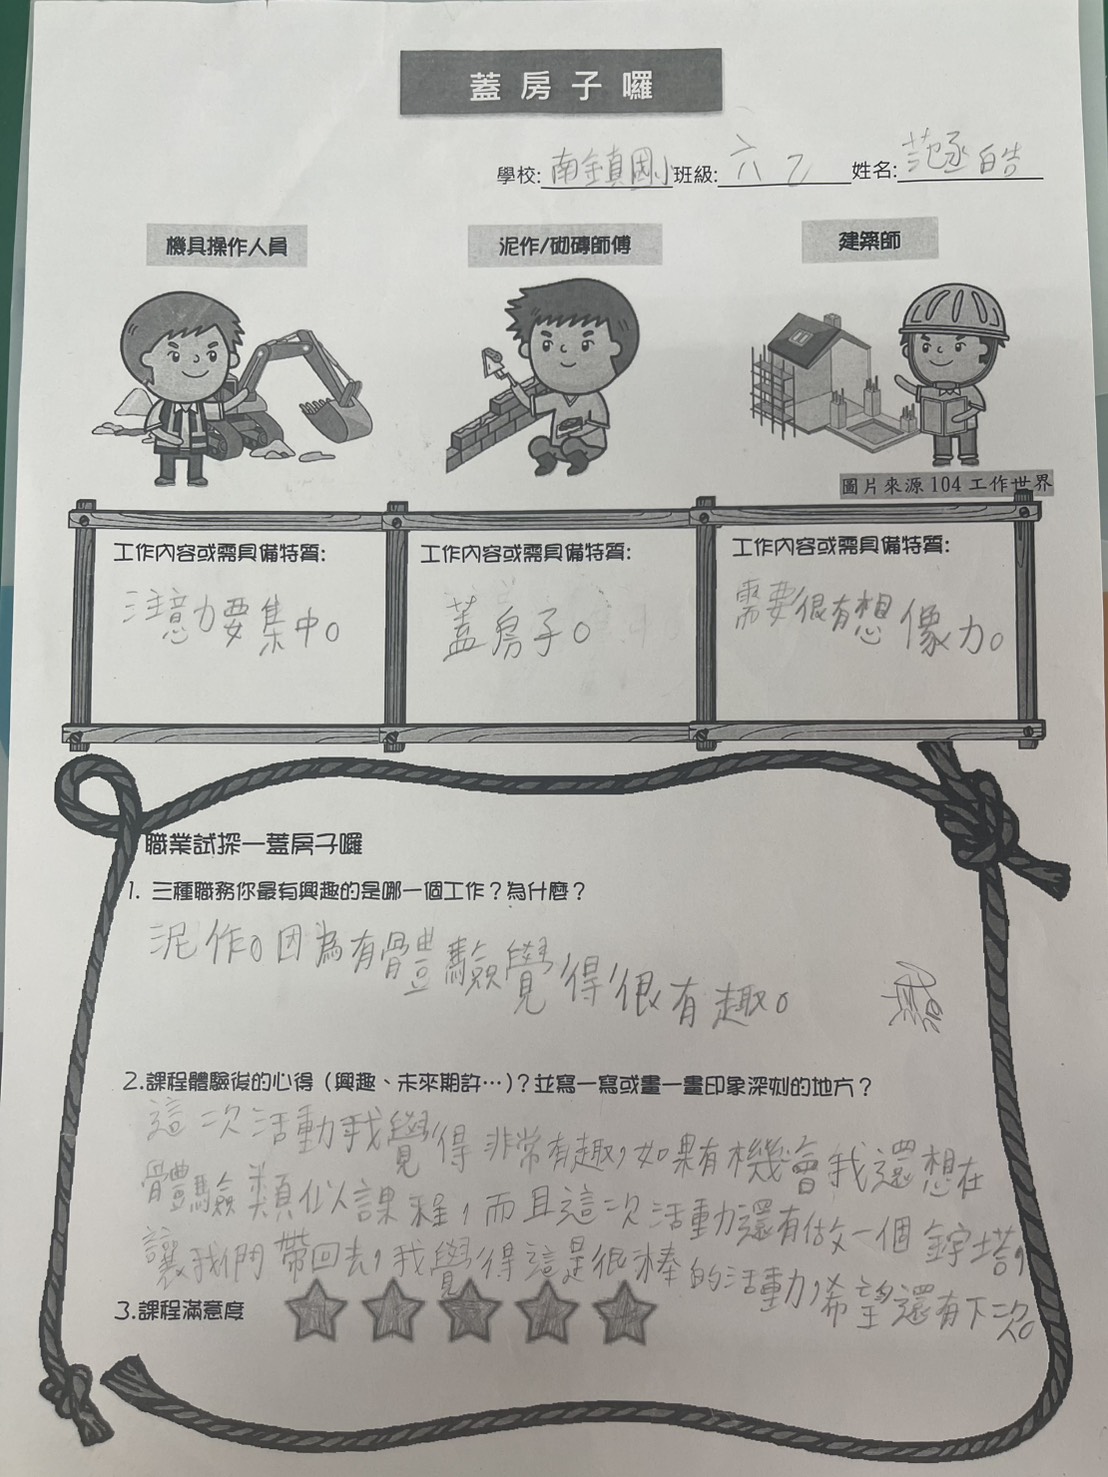 蓋房子囉
學校:南鎮國小班級:六乙 姓名:范丞皓
機具操作人員
泥作/砌磚師傅
建築師
圖片來源 104 工作世界
工作內容或需具備特質:
注意力要集中。
工作內容或需具備特質:
蓋房子。
工作內容或需具備特質:
需要很有想像力。
職業試探－蓋房子囉
1. 三種職務你最有興趣的是哪一個工作？為什麼？
泥作。因為有體驗覺得很有趣。
2.課程體驗後的心得（興趣、未來期許…）？並寫一寫或畫一畫印象深刻的地方？
這次活動我覺得非常有趣，如果有機會我還想在
體驗類似課程，而且這次活動還有做文一個塔，
讓我們帶回去，我覺得這是很棒的活動，希望還有下次。
3.課程滿意度